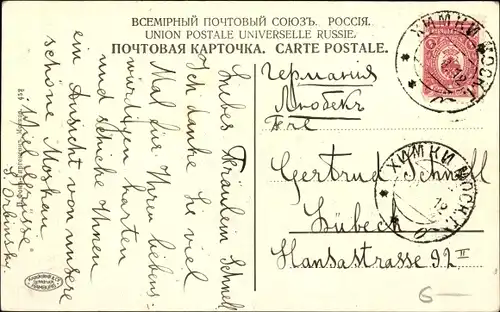 ВСЕМІРНЫЙ ПОЧТОВЫЙ СОЮЗЪ. РОССІЯ.
UNION POSTALE UNIVERSELLE RUSSIE.
ПОЧТОВАЯ КАРТОЧКА. CARTE POSTALE.
Liebes Fräulein Schnell
Ich danke Sie viel
Mal für Ihren liebens-
würdigen Karten
und schicke Ihnen
ein Ansicht von unsere
schöne Moskau.
Viele Grüsse
S. Orbinsky
Германия
Любекъ
Frl
Gertrud Schnell
Lübeck
Hansastrasse 92 II
ХИМКИ МОСК. Г.
12
ХИМКИ МОСК. Г.
12
6—